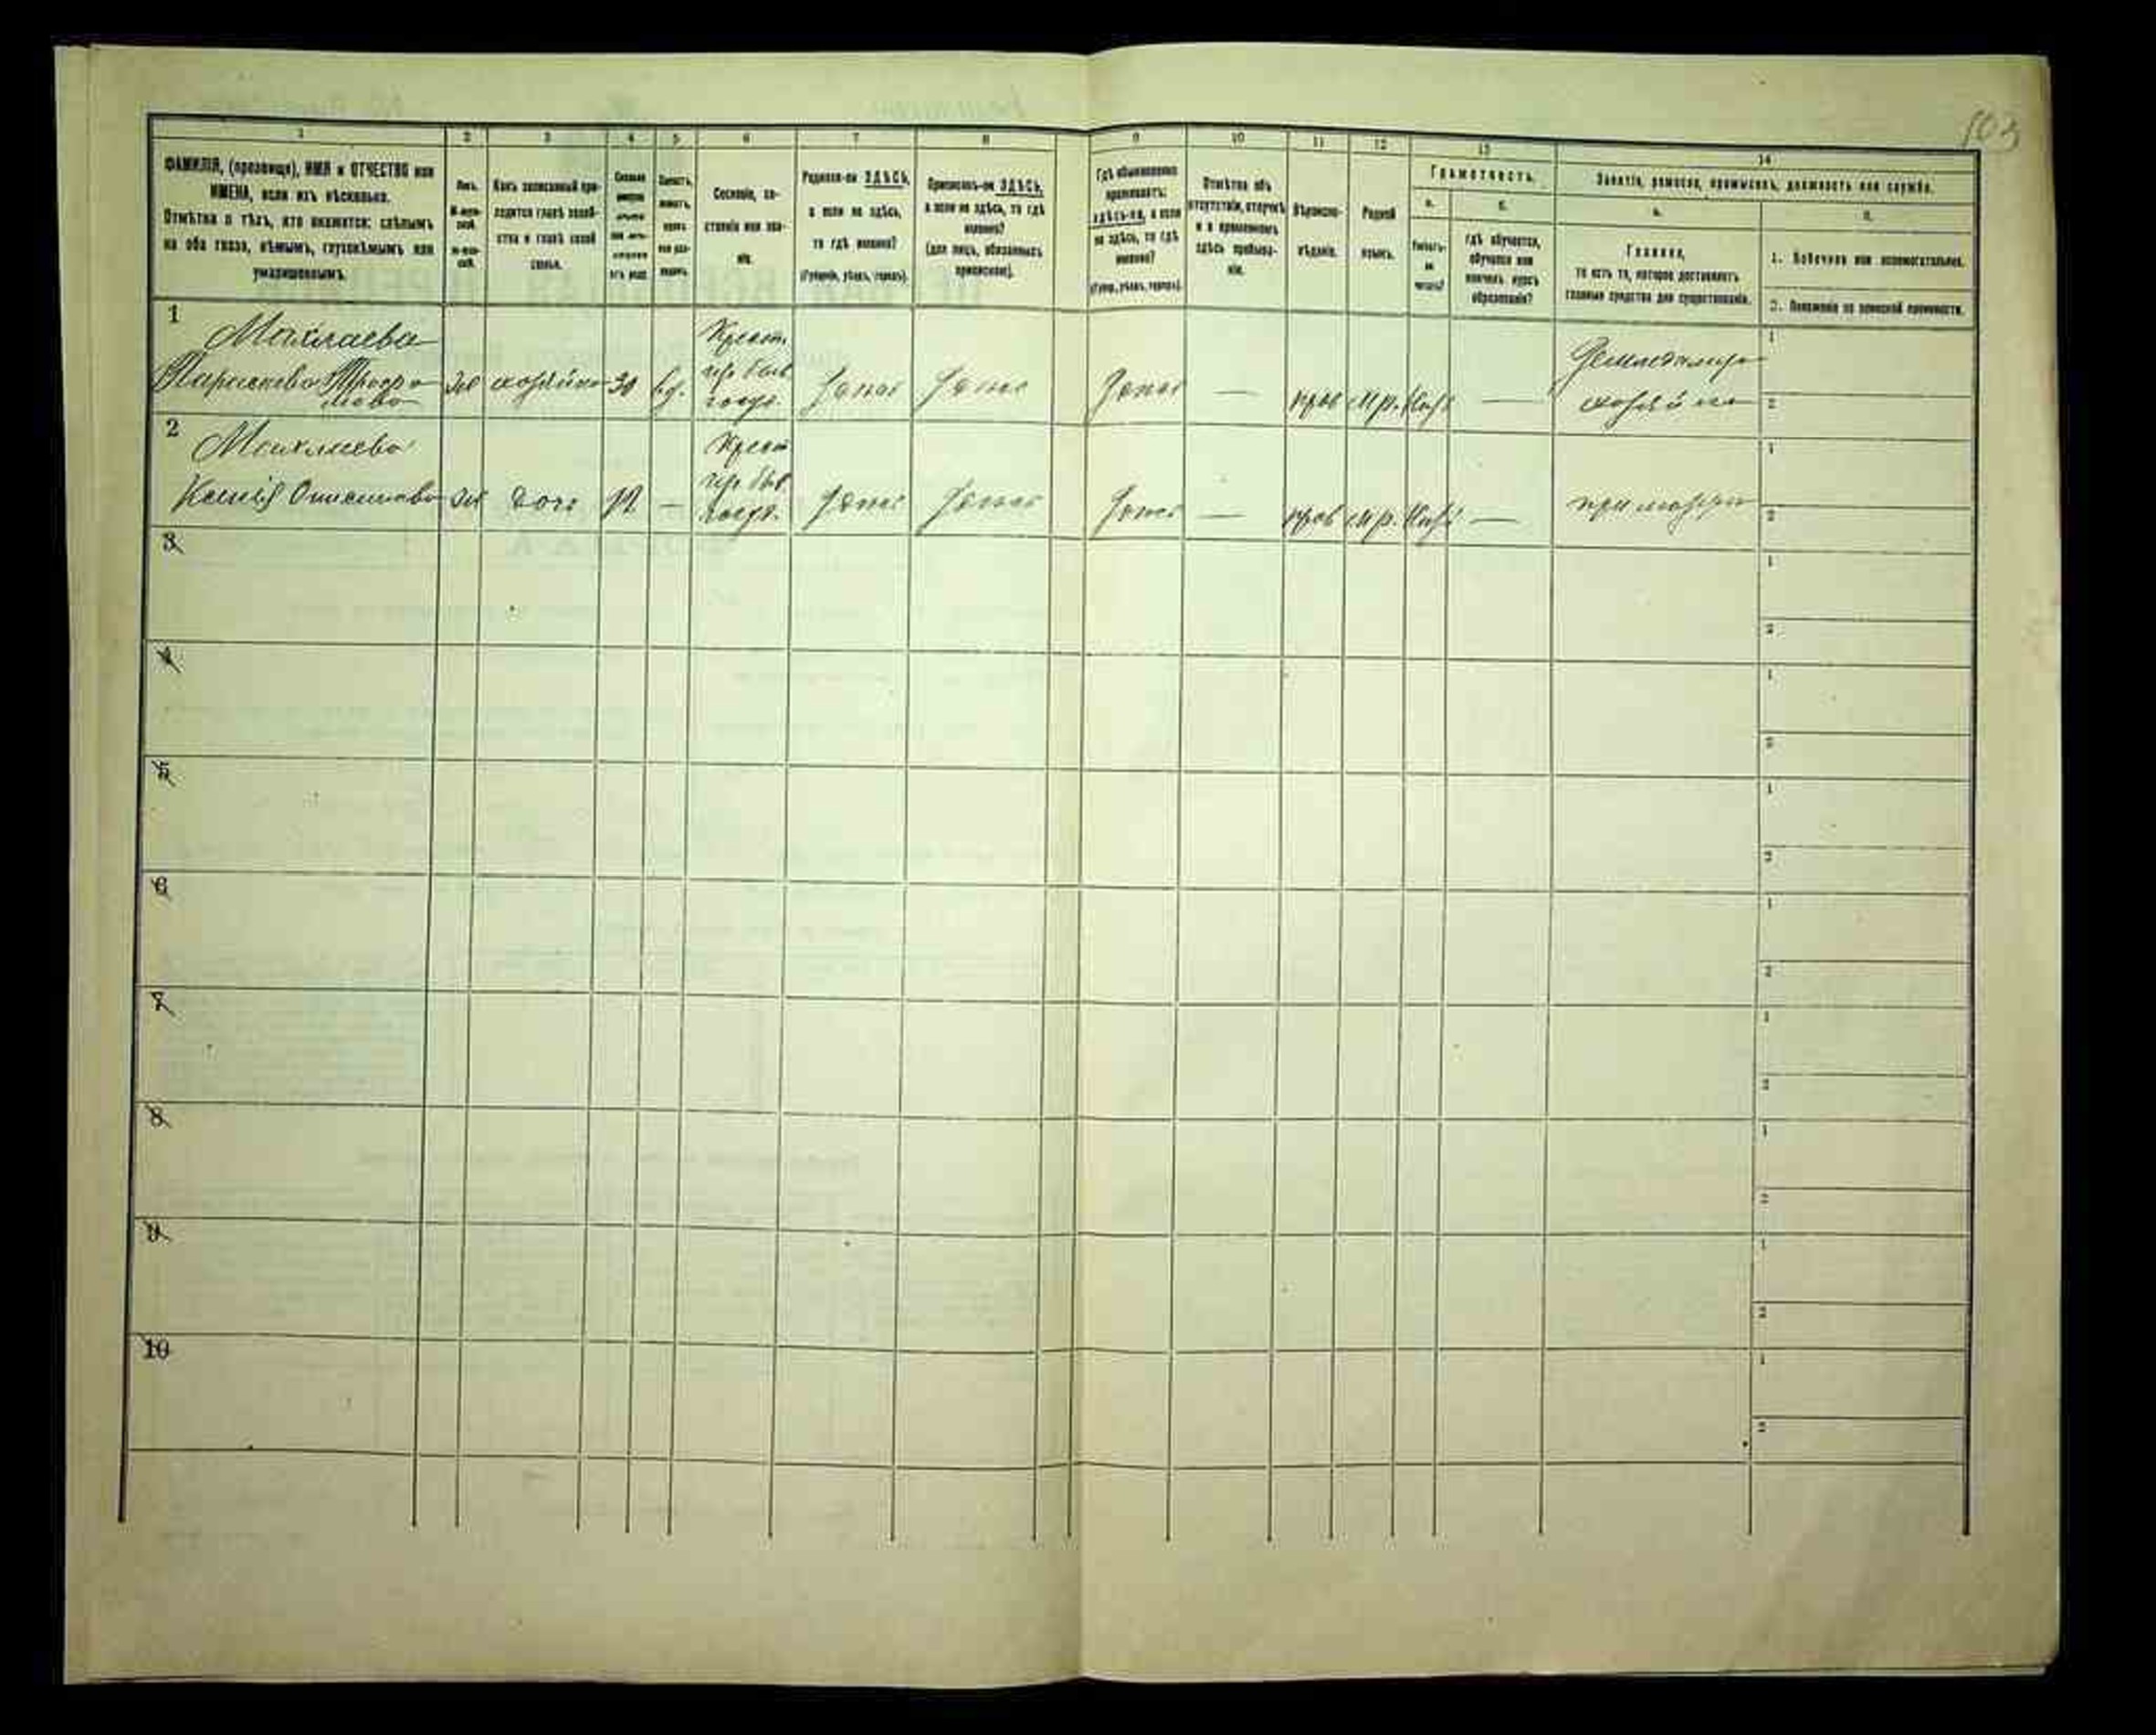 103
1 2 3 4 5 6 7 8 9 10 11 12 13 14
ФАМИЛІЯ, (прозвище), ИМЯ и ОТЧЕСТВО или
ИМЕНА, если ихъ нѣсколько.
Отмѣтка о тѣхъ, кто окажется: слѣпымъ
на оба глаза, нѣмымъ, глухонѣмымъ или
умалишеннымъ.
Полъ.
М-муж-
ской.
Ж-жен-
скій.
Какъ записанный при-
ходится главѣ хозяй-
ства и главѣ своей
семьи.
Сословіе, со-
стояніе или зва-
ніе.
Родился-ли ЗДѢСЬ,
а если не здѣсь,
то гдѣ именно?
(Губернія, уѣздъ, городъ).
Приписанъ-ли ЗДѢСЬ,
а если не здѣсь, то гдѣ
именно?
(для лицъ, обязанныхъ
припискою).
Гдѣ обыкновенно
проживаетъ:
здѣсь-ли, а если
не здѣсь, то гдѣ
именно?
(Губер., уѣздъ, городъ).
Отмѣтка объ
отсутствіи, отлучкѣ
и о временномъ
здѣсь пребыва-
ніи.
Вѣроиспо-
вѣданіе.
Родной
языкъ.
Грамотность.
а.
Умѣетъ-
ли
читать?
б.
гдѣ обучается,
обучался или
кончилъ курсъ
образованія?
Занятіе, ремесло, промыселъ, должность или служба.
а.
Главное,
то есть то, которое доставляетъ
главныя средства для существованія.
б.
1. Побочное или вспомогательное.
2. Положеніе по воинской повинности.
1
Махлаева
Параскева
Же хозяйка 30 вд.
Крест.
изъ быв.
госуд.
Здѣсь Здѣсь Здѣсь — прав
—
хозяйка
1
2
2
Махлаева
Ксенія
Же дочь 12 —
Крест.
изъ быв.
госуд.
Здѣсь Здѣсь Здѣсь — прав
—
при матери
1
2
3
1
2
4
1
2
5
1
2
6
1
2
7
1
2
8
1
2
9
1
2
10
1
2